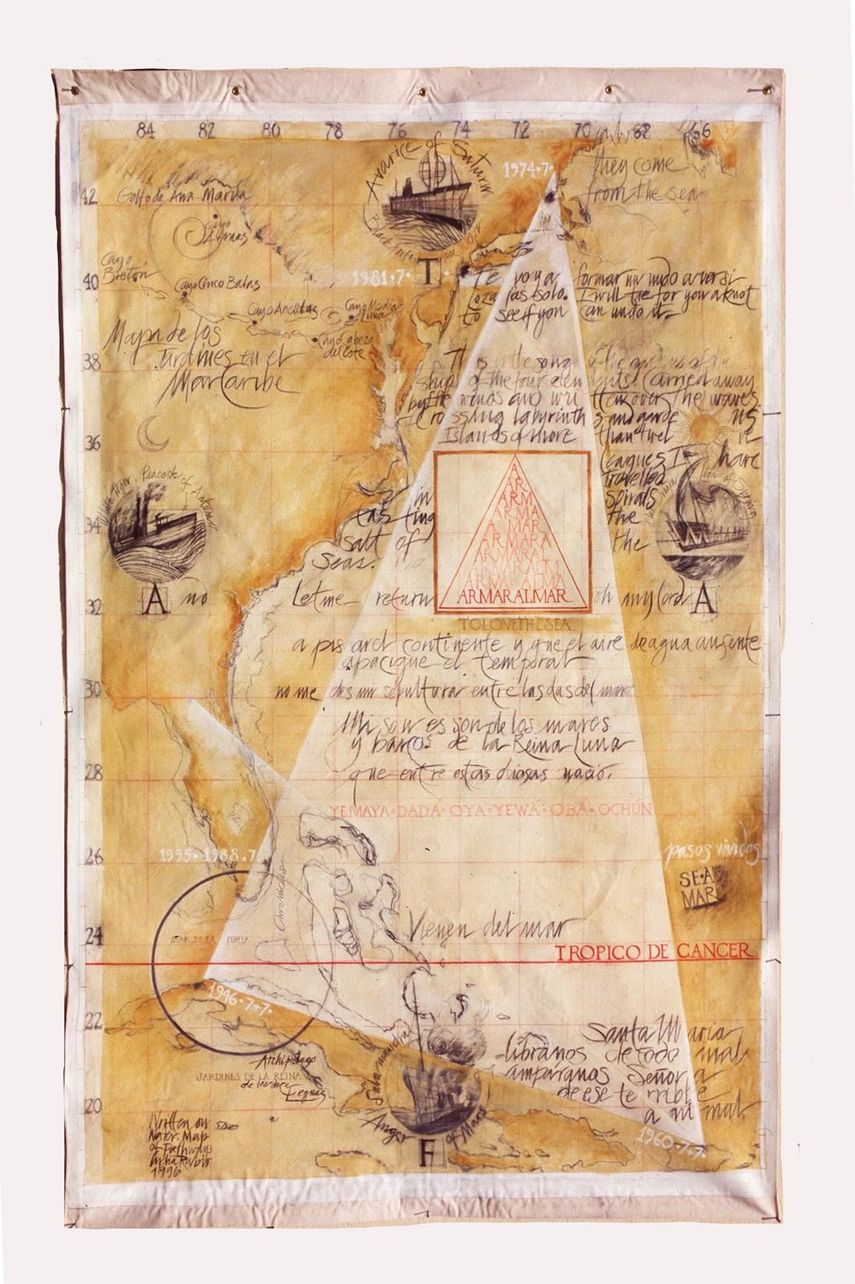 84 82 80 78 76 74 72 70 68 66
Avarice of Saturn
1974·7·
they come
from the sea
42
Golfo de Ana Maria
Cayo
Cayo
Bretón
40
Cayo Cinco Balas
Cayo Anclitas
Cayo Media
Luna
Cayo Cabeza
del Este
1981·7·
T
Te voy a formar un nudo a ver si
las sola. I will tie for you a knot
to see if you can undo it.
Mapa de los
Jardines en el
Mar Caribe
38
This is the song of the
ship of the four elements carried away
by the winds and the waves
Crossing labyrinths and gardens
Islands of more than twelve
leagues I have
travelled
spirals
36
in the
tasting the
salt of
Seas.
34
Peacock of
A
A
no
32
Let me return oh my lord
A
AR
ARM
ARMA
ARMAR
ARMARA
ARMARAL
ARMARALM
ARMARALMA
ARMARALMAR
TO LOVE THE SEA
a pisar el continente y que el aire de agua ausente
apacigue el temporal
30
no me des un sepultura entre las olas del mar
Mi son es son de los mares
y barcos de la Reina Luna
28
que entre estas diosas nació.
YEMAYA·DADA·OYA·YEWA·OBÁ·OCHÚN
26
1995·1988·7
pasos vividos
SE·A
MAR
24
Vienen del mar
TROPICO DE CANCER
1946·7·7·
22
Santa Maria
libranos de todo mal
amparanos Señora
de ese terrible
animal
Archipielago
JARDINES DE LA REINA
Leguas
20
Salamandra
Anger of Mars
F
1960·7·7·
Written on
Water. Map
of Pathways
1996